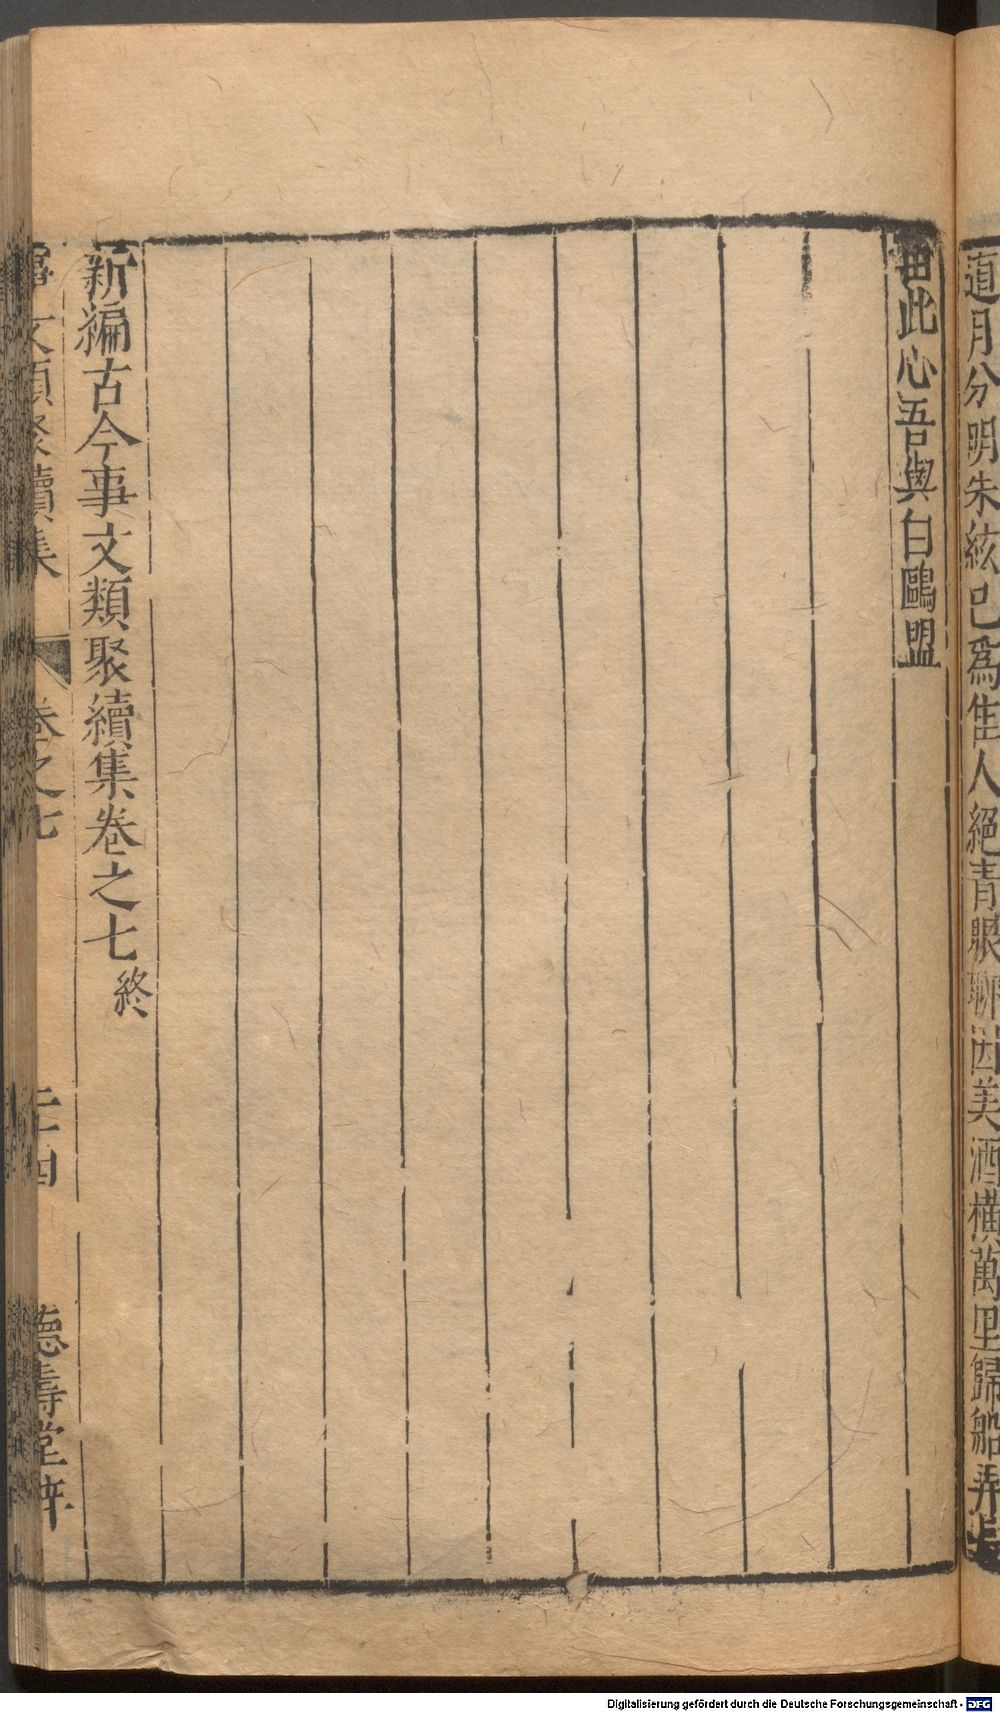 道月分明朱絃已為佳人絕青眼聊因美酒橫萬里歸船弄長
笛此心吾與白鷗盟
新編古今事文類聚續集卷之七終
文類聚續集 卷之七 二十四 德壽堂梓
Digitalisierung gefördert durch die Deutsche Forschungsgemeinschaft - DFG